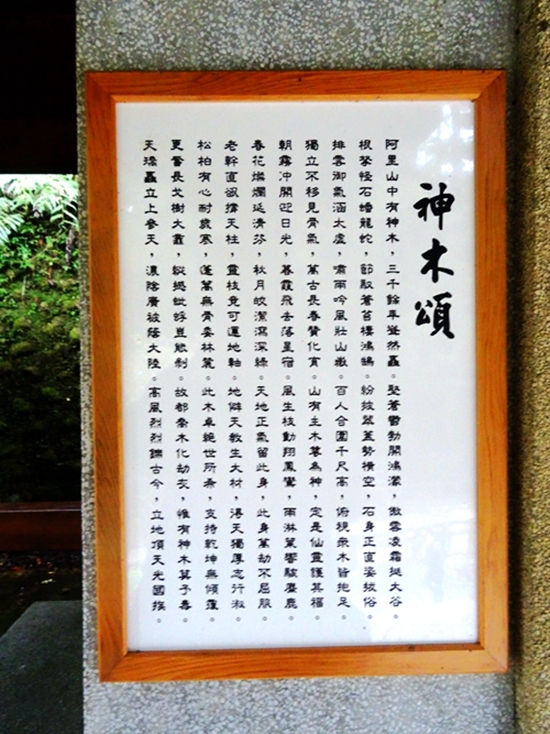 神木頌
阿里山中有神木，三千餘年巍然矗。堅蒼鬱勃開鴻濛，傲雲凌霜挺大谷。
根拏怪石蟠龍蛇，節駁蒼苔棲鴻鵠。紛披翠蓋勢橫空，石身正直姿拔俗。
排雲御氣涵太虛，嘯雨吟風壯山嶽。百人合圍千尺高，俯視眾木皆抱足。
獨立不移見骨氣，萬古長春贊化育。山有主木尊為神，定是仙靈護其福。
朝霧沖開迎日光，暮霞飛去落星宿。風生枝動翔鳳鸞，雨淋葉響駭麋鹿。
春花爛熳延清芬，秋月皎潔瀉深綠。天地正氣留此身，此身萬劫不屈服。
老幹直欲撐天柱，靈枝竟可運地軸。地僻天教生大材，得天獨厚志行淑。
松柏有心耐歲寒，蓬蒿無骨委林麓。此木卓絕世所希，支持乾坤無傾覆。
更奮長戈樹大纛，縱撼蚍蜉豈能剝。故都喬木化劫灰，惟有神木莫予毒。
天葆矗立上參天，濃陰廣被蔭大陸。高風烈烈鑠古今，立地頂天光國族。